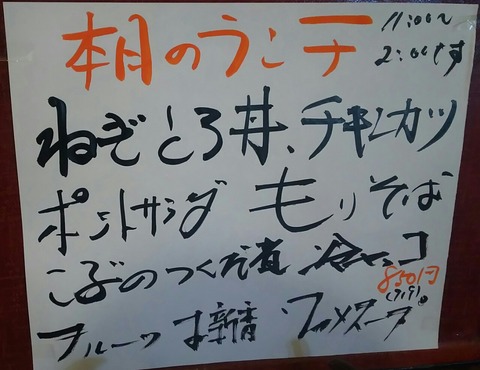 本日のランチ 11:00〜
2:00です
ねぎとろ丼、チキンカツ
ポテトサラダ もりそば
こぶのつくだ煮 冷ヤッコ
850円
フルーツ お新香 ワカメスープ